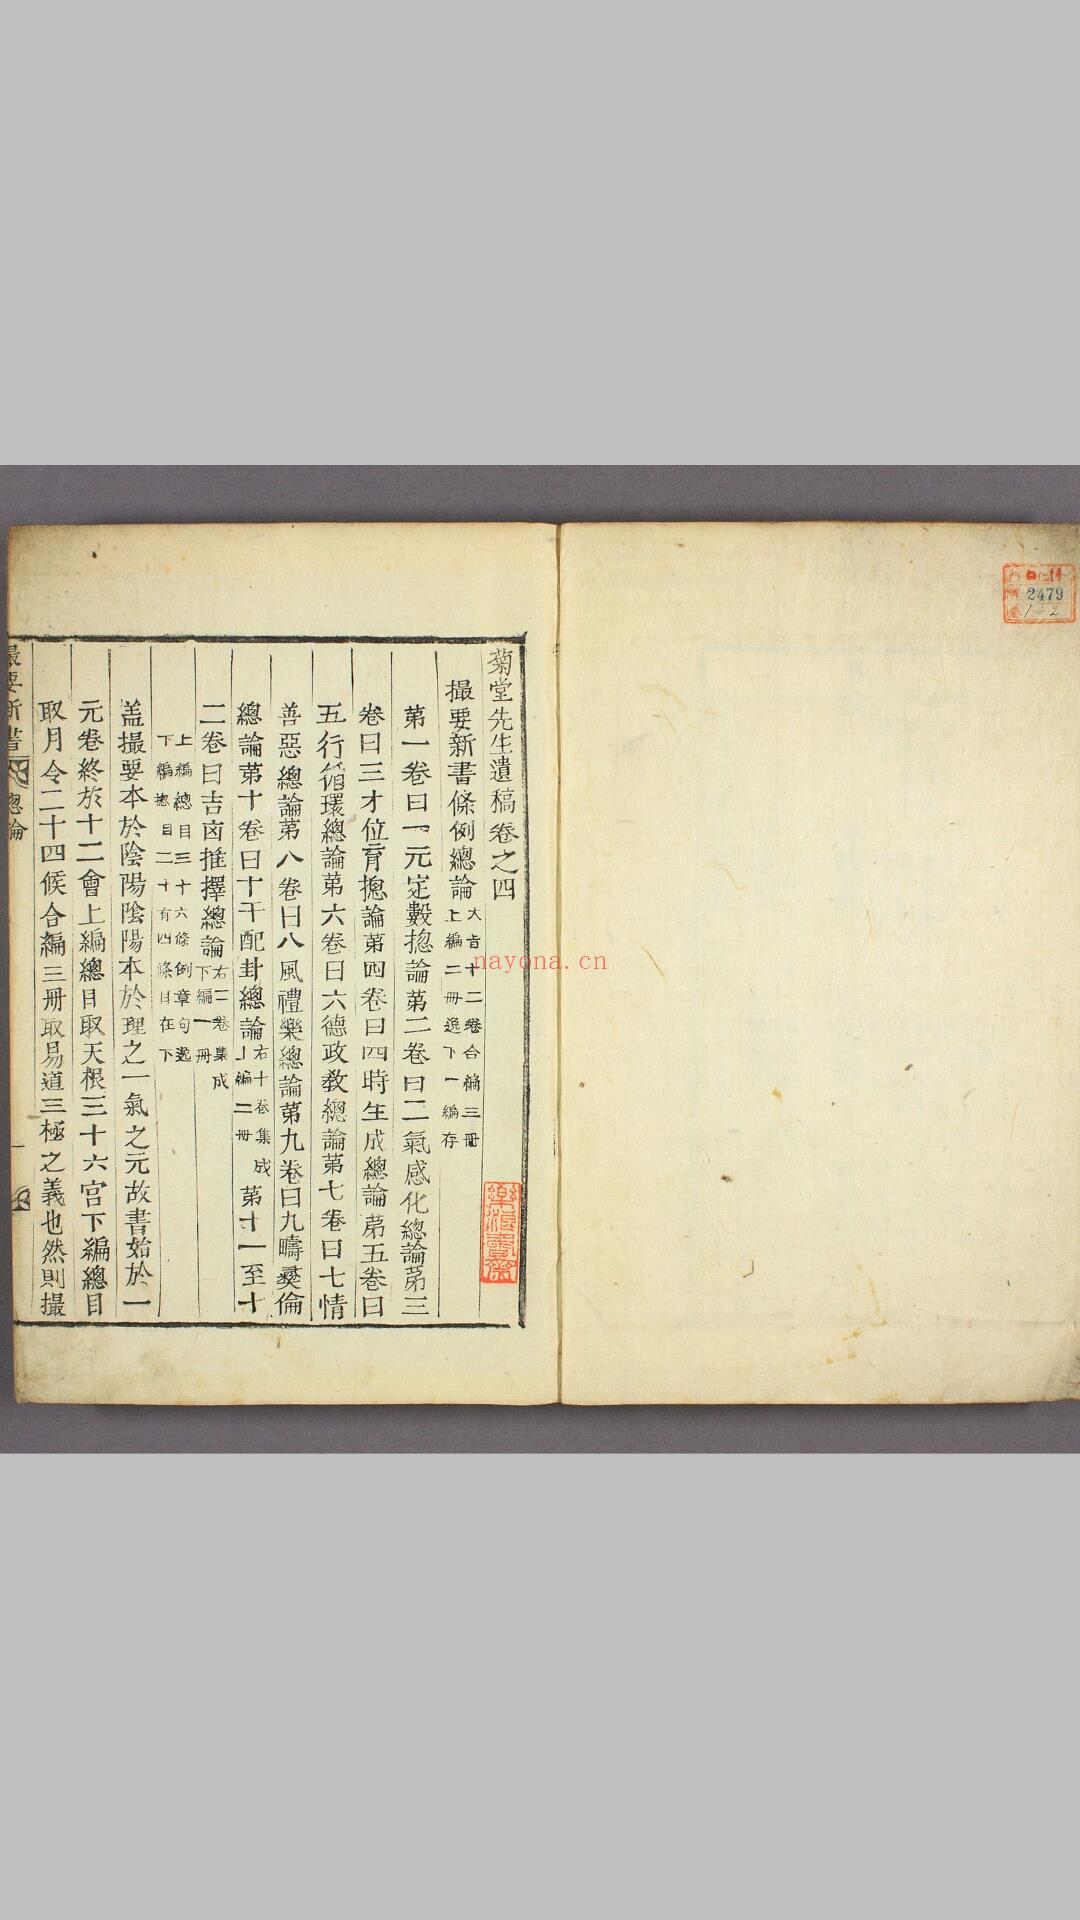 2479
菊堂先生遺稿卷之四
撮要新書條例總論
大旨十二卷合編三冊
上編二冊逸下一編存
第一卷曰一元定數摠論第二卷曰二氣感化總論第三
卷曰三才位育摠論第四卷曰四時生成總論第五卷曰
五行循環總論第六卷曰六德政敎總論第七卷曰七情
善惡總論第八卷曰八風禮樂總論第九卷曰九疇彛倫
總論第十卷曰十干配卦總論
右十卷集成
上編二冊
第十一至十
二卷曰吉凶推擇總論
右二卷集成
下編一冊
上編總目三十六條例章句逸
下編摠目二十有四條目在下
盖撮要本於陰陽陰陽本於理之一氣之元故書始於一
元卷終於十二會上編總目取天根三十六宮下編總目
取月令二十四候合編三冊取易道三極之義也然則撮
撮要新書
總論
一
nayona.cn